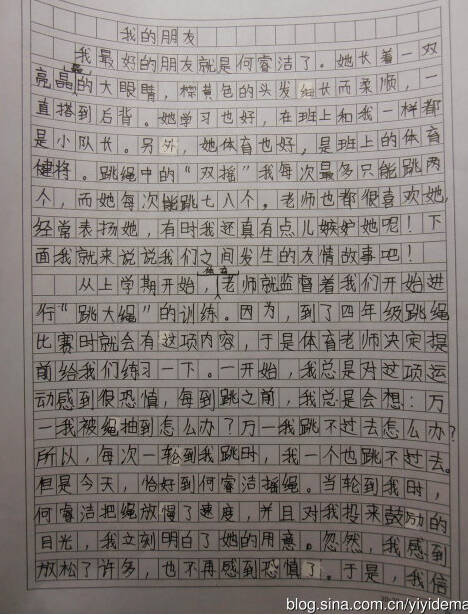 我的朋友
我最好的朋友就是何睿洁了。她长着一双
亮晶晶的大眼睛，棕黄色的头发细长而柔顺，一
直搭到后背。她学习也好，在班上和我一样都
是小队长。另外，她体育也好，是班上的体育
健将。跳绳中的“双摇”我每次最多只能跳两
个，而她每次能跳七八个。老师也都很喜欢她，
经常表扬她，有时我还真有点儿嫉妒她呢！下
面我就来说说我们之间发生的友情故事吧！
从上学期开始，体育老师就监督着我们开始进
行“跳大绳”的训练。因为，到了四年级跳绳
比赛时就会有这项内容，于是体育老师决定提
前给我们练习一下。一开始，我总是对这项运
动感到很恐慎，每到跳之前，我总是会想：万
一我被绳抽到怎么办？万一我跳不过去怎么办？
所以，每次一轮到我跳时，我一个也跳不过去。
但是今天，恰好到何睿洁摇绳。当轮到我时，
何睿洁把绳放慢了速度，并且对我投来鼓励的
目光，我立刻明白了她的用意。忽然，我感到
放松了许多，也不再感到恐慎了。于是，我信
blog.sina.com.cn/yiyidema